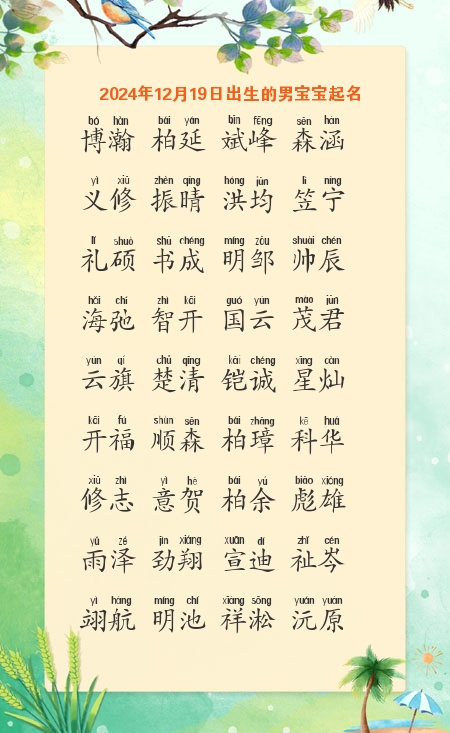 2024年12月19日出生的男宝宝起名
bó hàn bǎi yán bīn fēng sēn hán
博瀚 柏延 斌峰 森涵
yì xiū zhèn qíng hóng jūn lì níng
义修 振晴 洪均 笠宁
lǐ shuò shū chéng míng zōu shuài chén
礼硕 书成 明邹 帅辰
hǎi chí zhì kāi guó yún mào jūn
海弛 智开 国云 茂君
yún qí chǔ qīng kǎi chéng xīng càn
云旗 楚清 铠诚 星灿
kāi fú shùn sēn bǎi zhāng kē huá
开福 顺森 柏璋 科华
xiū zhì yì hè bǎi yú biāo xióng
修志 意贺 柏余 彪雄
yǔ zé jìn xiáng xuān dí zhǐ cén
雨泽 劲翔 宣迪 祉岑
yì háng míng chí xiáng sōng yuán yuán
翊航 明池 祥淞 沅原